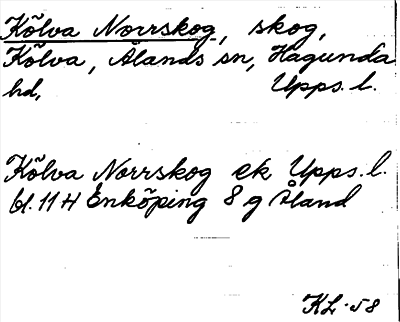 Kölva Norrskog, skog,
Kölva, Ålands sn, Hagunda
hd, Upps. l.
Kölva Norrskog ek Upps. l.
bl. 11 H Enköping 8 g Åland
KL -58